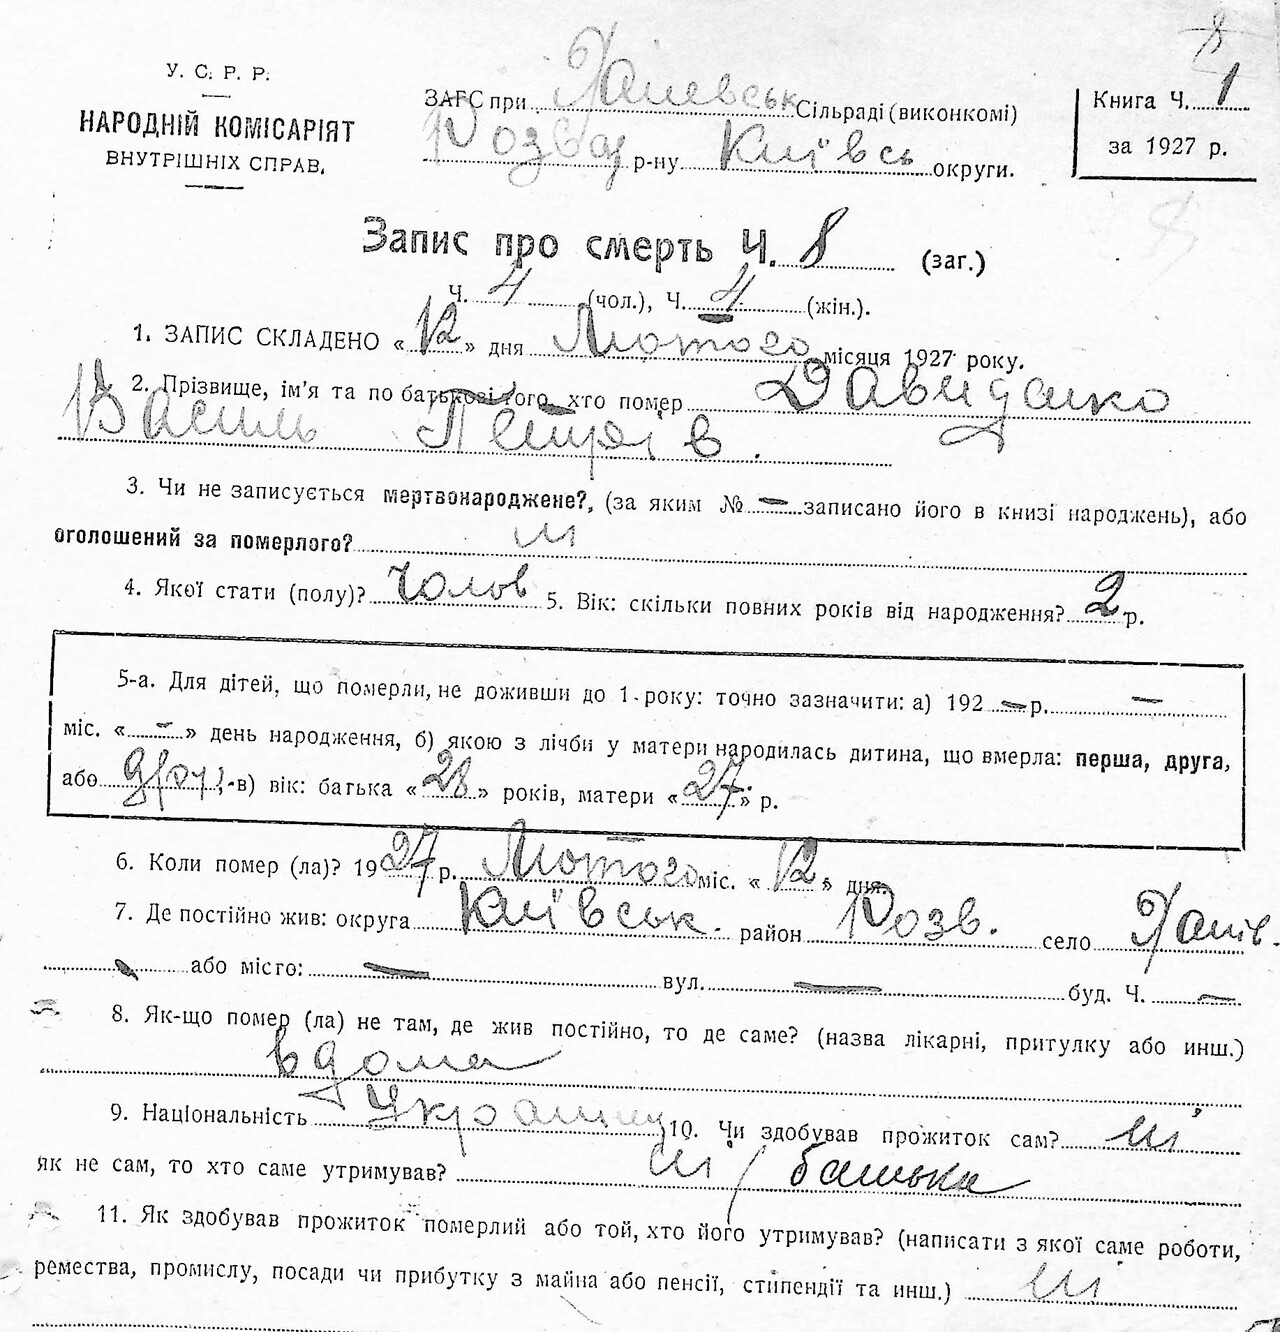 8
У. С. Р. Р.
НАРОДНІЙ КОМІСАРІЯТ
ВНУТРІШНІХ СПРАВ.
ЗАГС при Ханевськ Сільраді (виконкомі)
Розваж р-ну Київсь округи.
Книга Ч. 1
за 1927 р.
Запис про смерть Ч. 8 (заг.)
Ч. 4 (чол.), Ч. 4 (жін.).
1. ЗАПИС СКЛАДЕНО «12» дня Лютого місяця 1927 року.
2. Прізвище, ім'я та по батькові того, хто помер Давиденко
Василь Петрів.
3. Чи не записується мертвонароджене?, (за яким № — записано його в книзі народжень), або
оголошений за померлого? ні
4. Якої стати (полу)? Чолов 5. Вік: скільки повних років від народження? 2 р.
5-а. Для дітей, що померли, не доживши до 1 року: точно зазначити: а) 192 — р. —
міс. « — » день народження, б) якою з лічби у матери народилась дитина, що вмерла: перша, друга,
або друг; в) вік: батька «28» років, матери «27» р.
6. Коли помер (ла)? 1927 р. Лютого міс. «12» дня.
7. Де постійно жив: округа Київськ. район Розв. село Ханів.
або місто: — вул. — буд. Ч. —
8. Як-що помер (ла) не там, де жив постійно, то де саме? (назва лікарні, притулку або инш.)
вдома
9. Національність Украинц 10. Чи здобував прожиток сам? ні
як не сам, то хто саме утримував? ні / батька
11. Як здобував прожиток померлий або той, хто його утримував? (написати з якої саме роботи,
ремества, промислу, посади чи прибутку з майна або пенсії, стипендії та инш.) ні